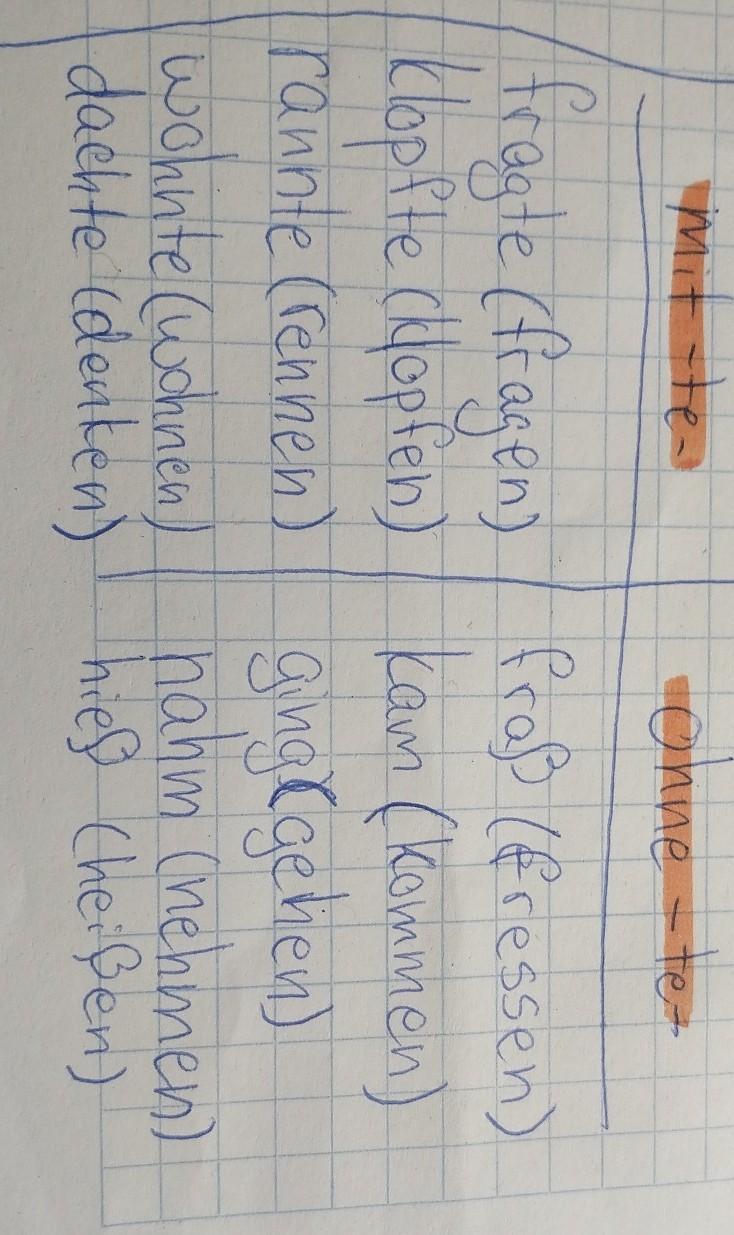 mit -te-
ohne -te-
fragte (fragen)
fraß (fressen)
klopfte (klopfen)
kam (kommen)
rannte (rennen)
ging (gehen)
wohnte (wohnen)
nahm (nehmen)
dachte (denken)
hieß (heißen)